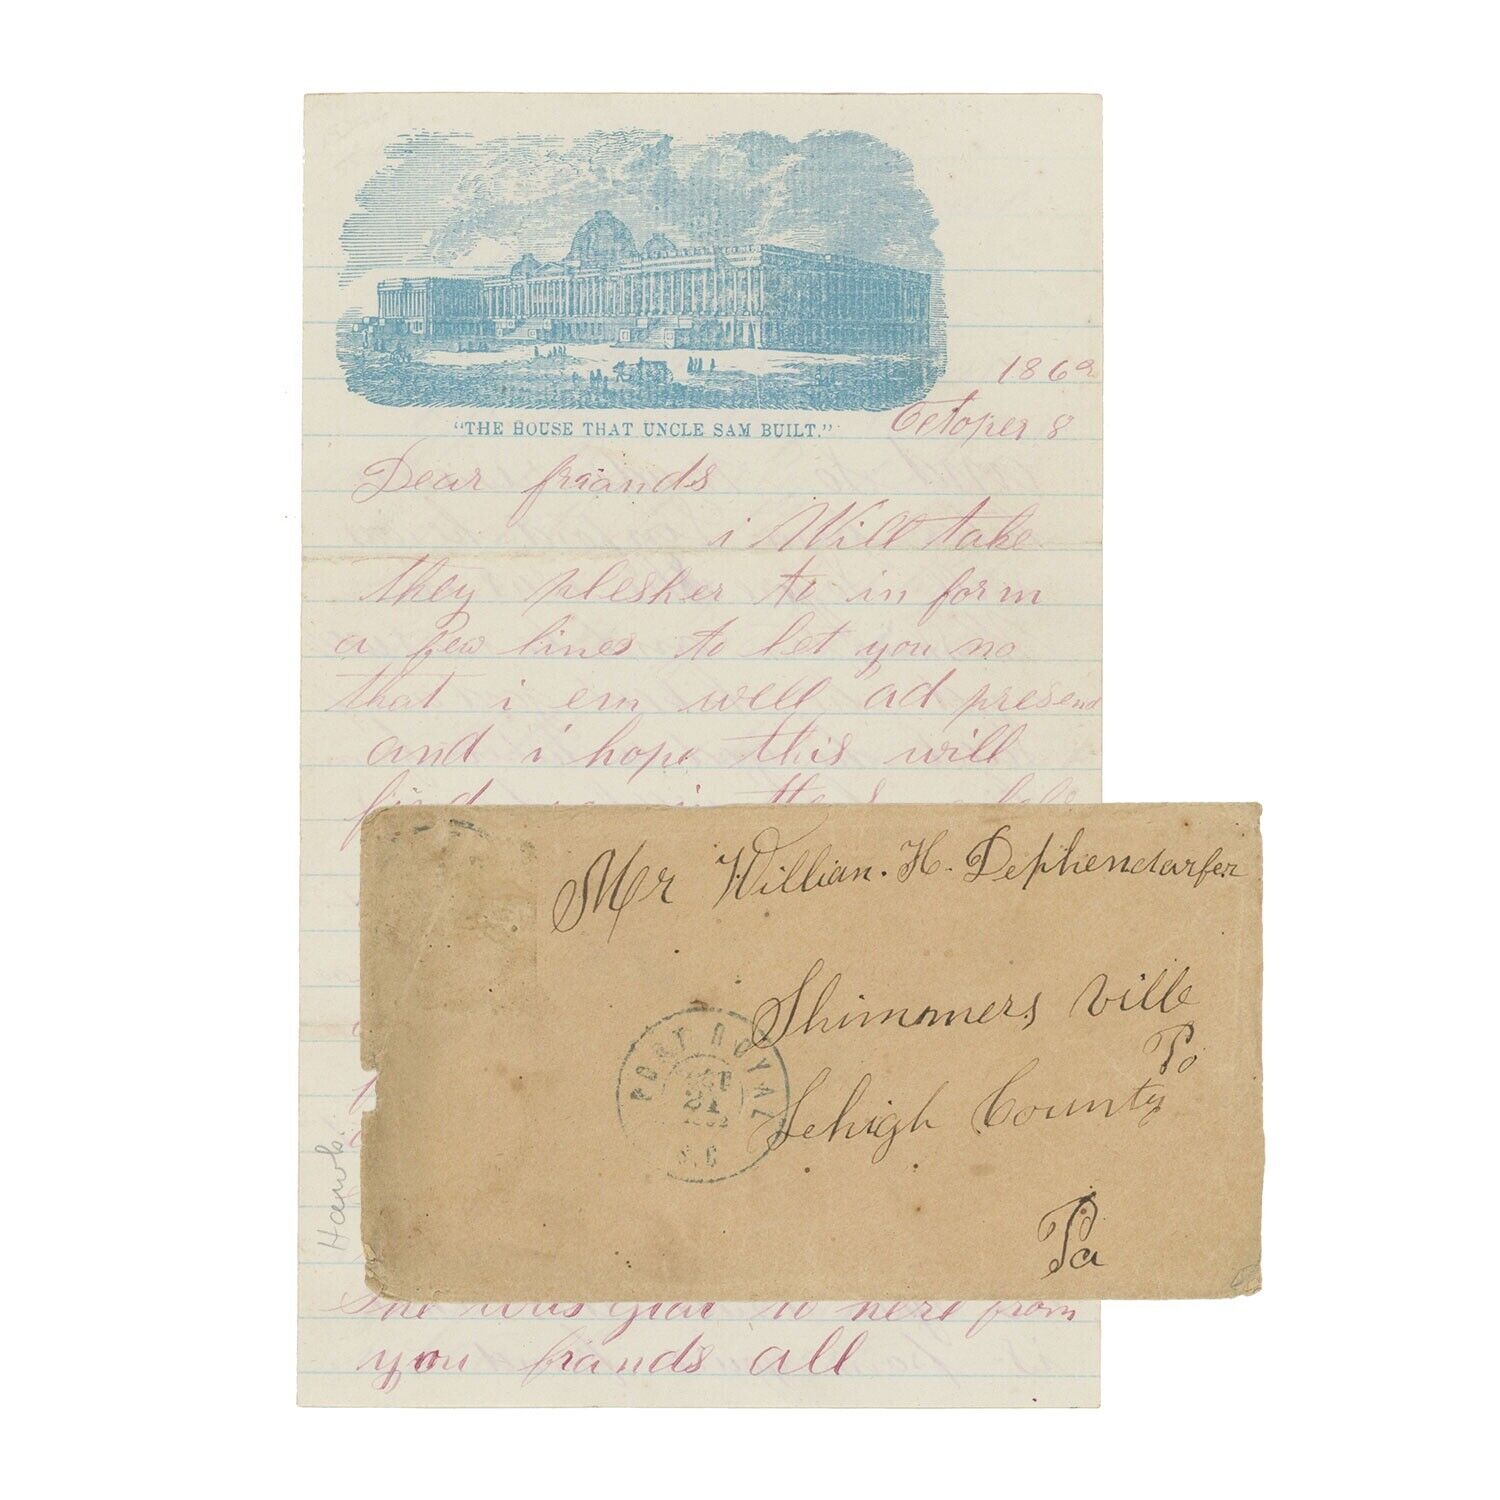 1862
"THE HOUSE THAT UNCLE SAM BUILT."
Octoper 8
Dear friands
i Will take
they plesher to in form
a few lines to let you no
that i em well ad presend
and i hope this will
find in the
Mr Willian. H. Dephendarfer
Shimmers ville
Po
Lehigh County
Pa
PORT ROYAL
OCT
21
1862
S.C
Hamb.
was glad to here from
you friands all